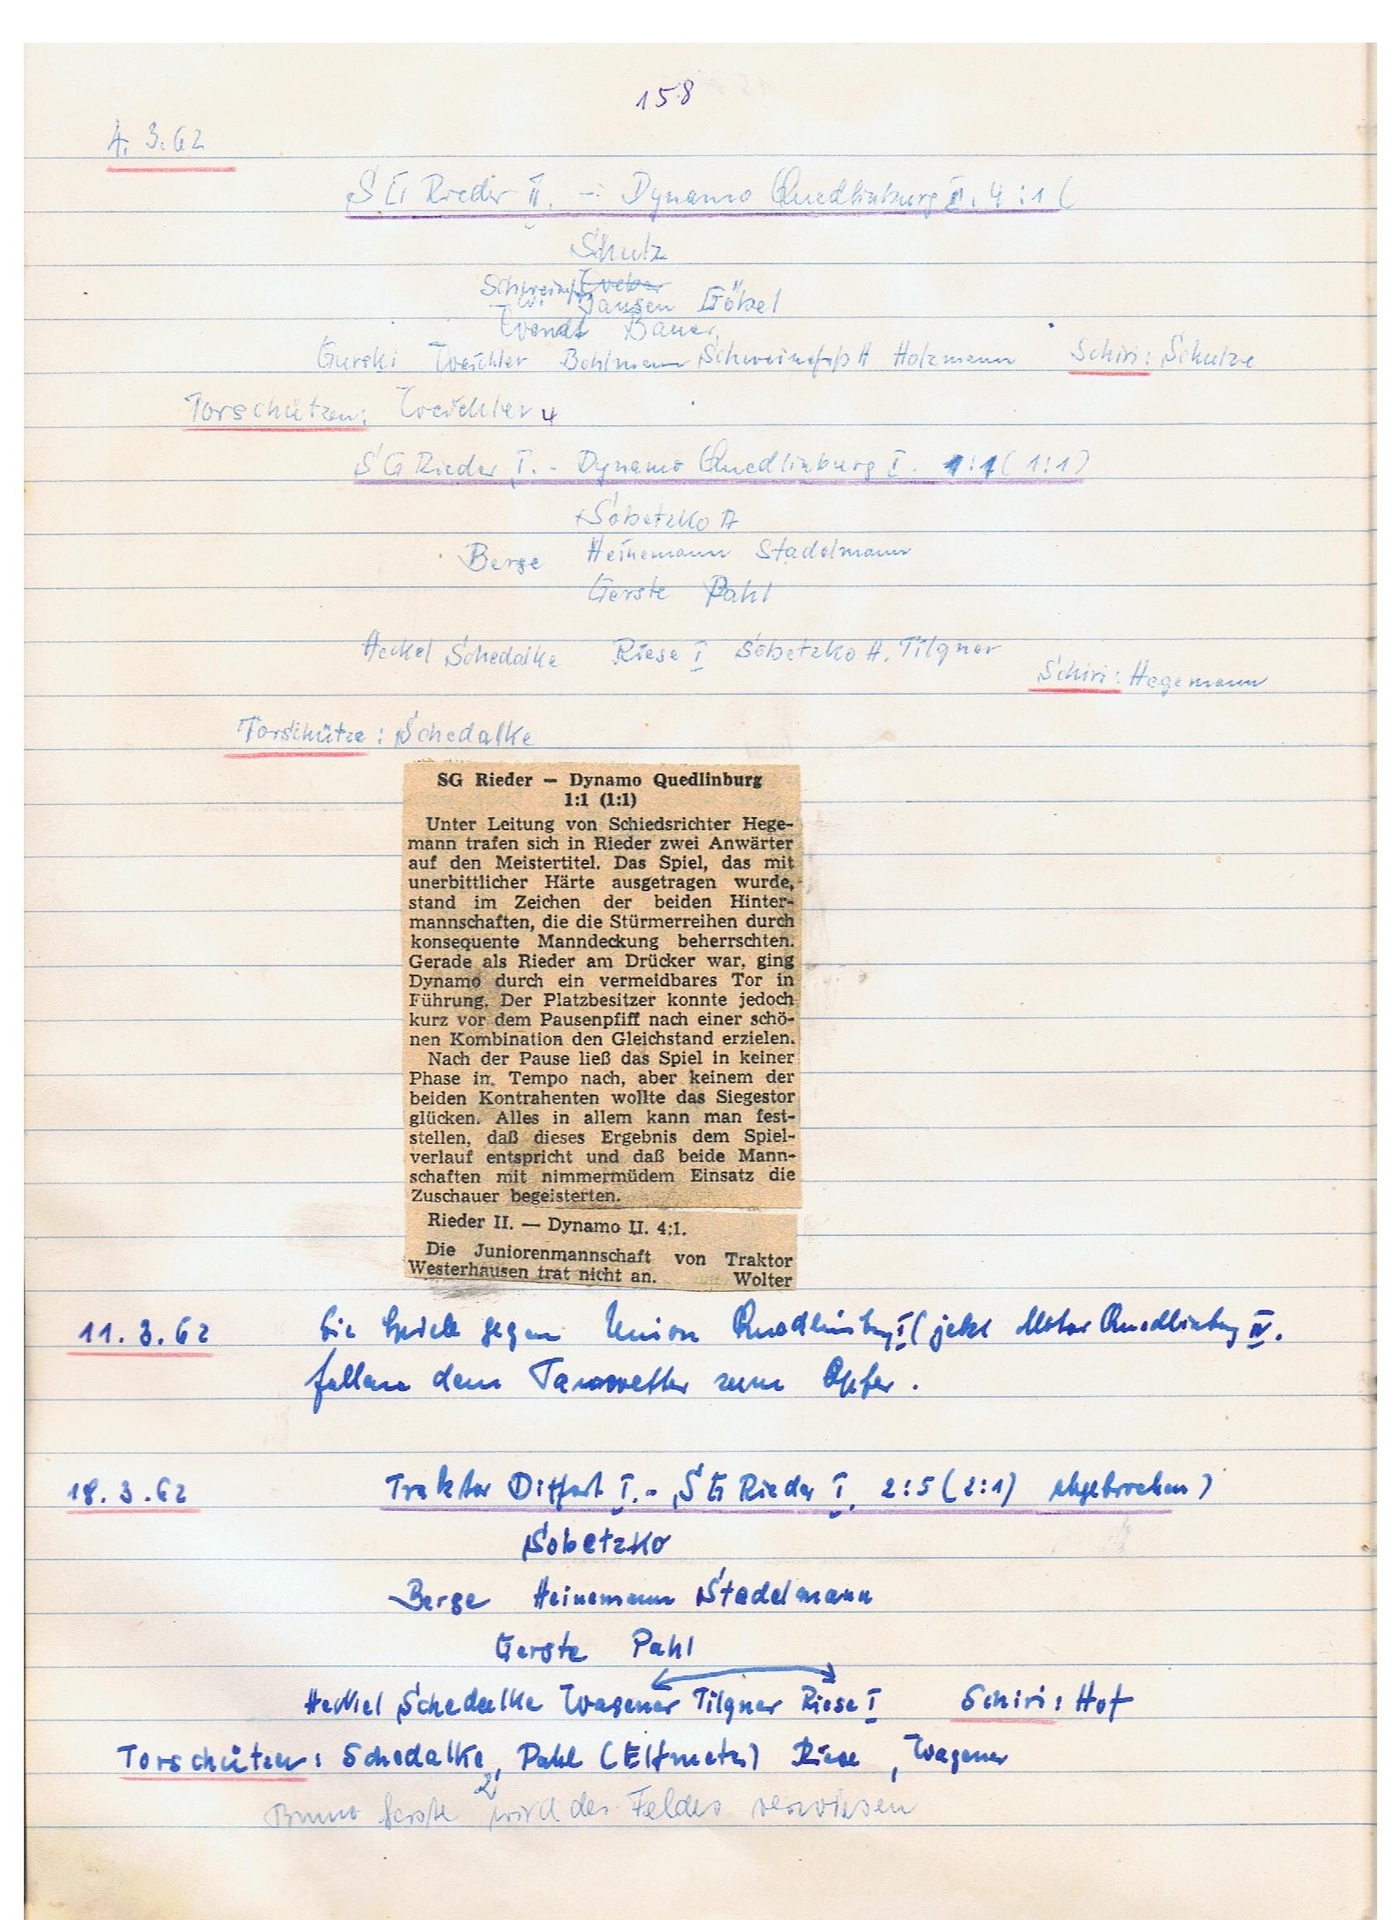 158
4. 3. 62
SG Rieder II. – Dynamo Quedlinburg II. 4:1 (
Schulz
W. Jansen Göbel
Wendt Bauer
Gurski Weichler Bohlmann Schweinefuß H Holzmann Schiri: Schulze
Torschützen: Weichler 4
SG Rieder I. - Dynamo Quedlinburg I. 1:1 (1:1)
Sobetzko A
Berge Heinemann Stadelmann
Gerste Pahl
Heckel Schedalke Riese I Sobetzko H. Tilgner
Schiri: Hegemann
Torschütze: Schedalke
SG Rieder — Dynamo Quedlinburg
1:1 (1:1)
Unter Leitung von Schiedsrichter Hege-
mann trafen sich in Rieder zwei Anwärter
auf den Meistertitel. Das Spiel, das mit
unerbittlicher Härte ausgetragen wurde,
stand im Zeichen der beiden Hinter-
mannschaften, die die Stürmerreihen durch
konsequente Manndeckung beherrschten.
Gerade als Rieder am Drücker war, ging
Dynamo durch ein vermeidbares Tor in
Führung. Der Platzbesitzer konnte jedoch
kurz vor dem Pausenpfiff nach einer schö-
nen Kombination den Gleichstand erzielen.
Nach der Pause ließ das Spiel in keiner
Phase in Tempo nach, aber keinem der
beiden Kontrahenten wollte das Siegestor
glücken. Alles in allem kann man fest-
stellen, daß dieses Ergebnis dem Spiel-
verlauf entspricht und daß beide Mann-
schaften mit nimmermüdem Einsatz die
Zuschauer begeisterten.
Rieder II. — Dynamo II. 4:1.
Die Juniorenmannschaft von Traktor
Westerhausen trat nicht an. Wolter
11. 3. 62 Die Spiele gegen Union Quedlinburg I (jetzt Motor Quedlinburg IV.
fallen dem Tauwetter zum Opfer.
18. 3. 62 Traktor Ditfurt I. - SG Rieder I. 2:5 (2:1) abgebrochen)
Sobetzko
Berge Heinemann Stadelmann
Gerste Pahl
Heckel Schedalke Wagener Tilgner Riese I Schiri: Hof
Torschützen: Schedalke 2, Pahl (Elfmeter) Riese, Wagener
Bruno Gerste wird des Feldes verwiesen